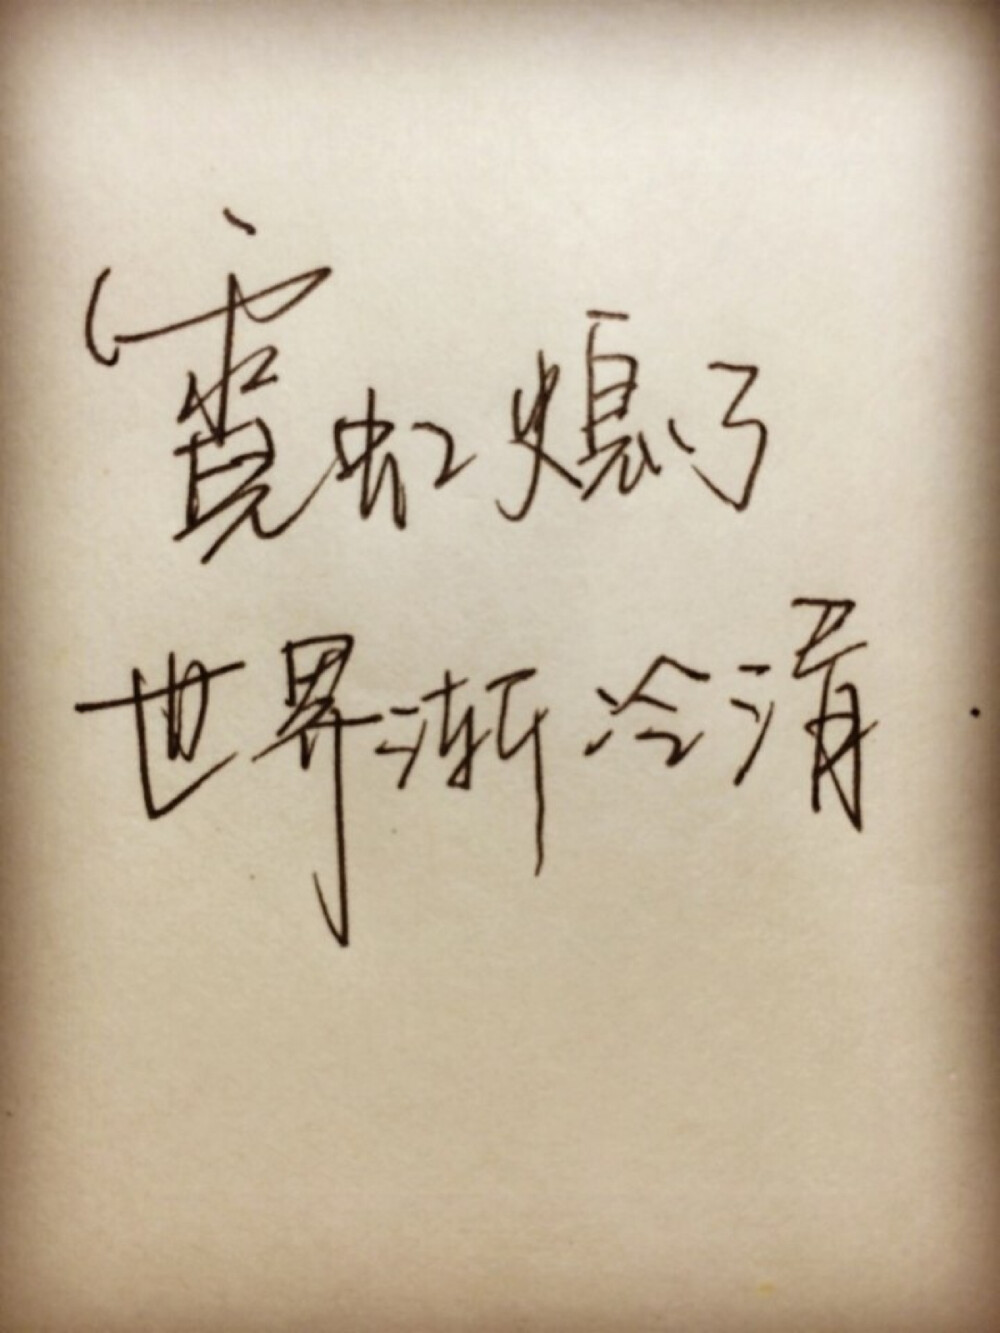 霓虹熄了
世界渐冷清